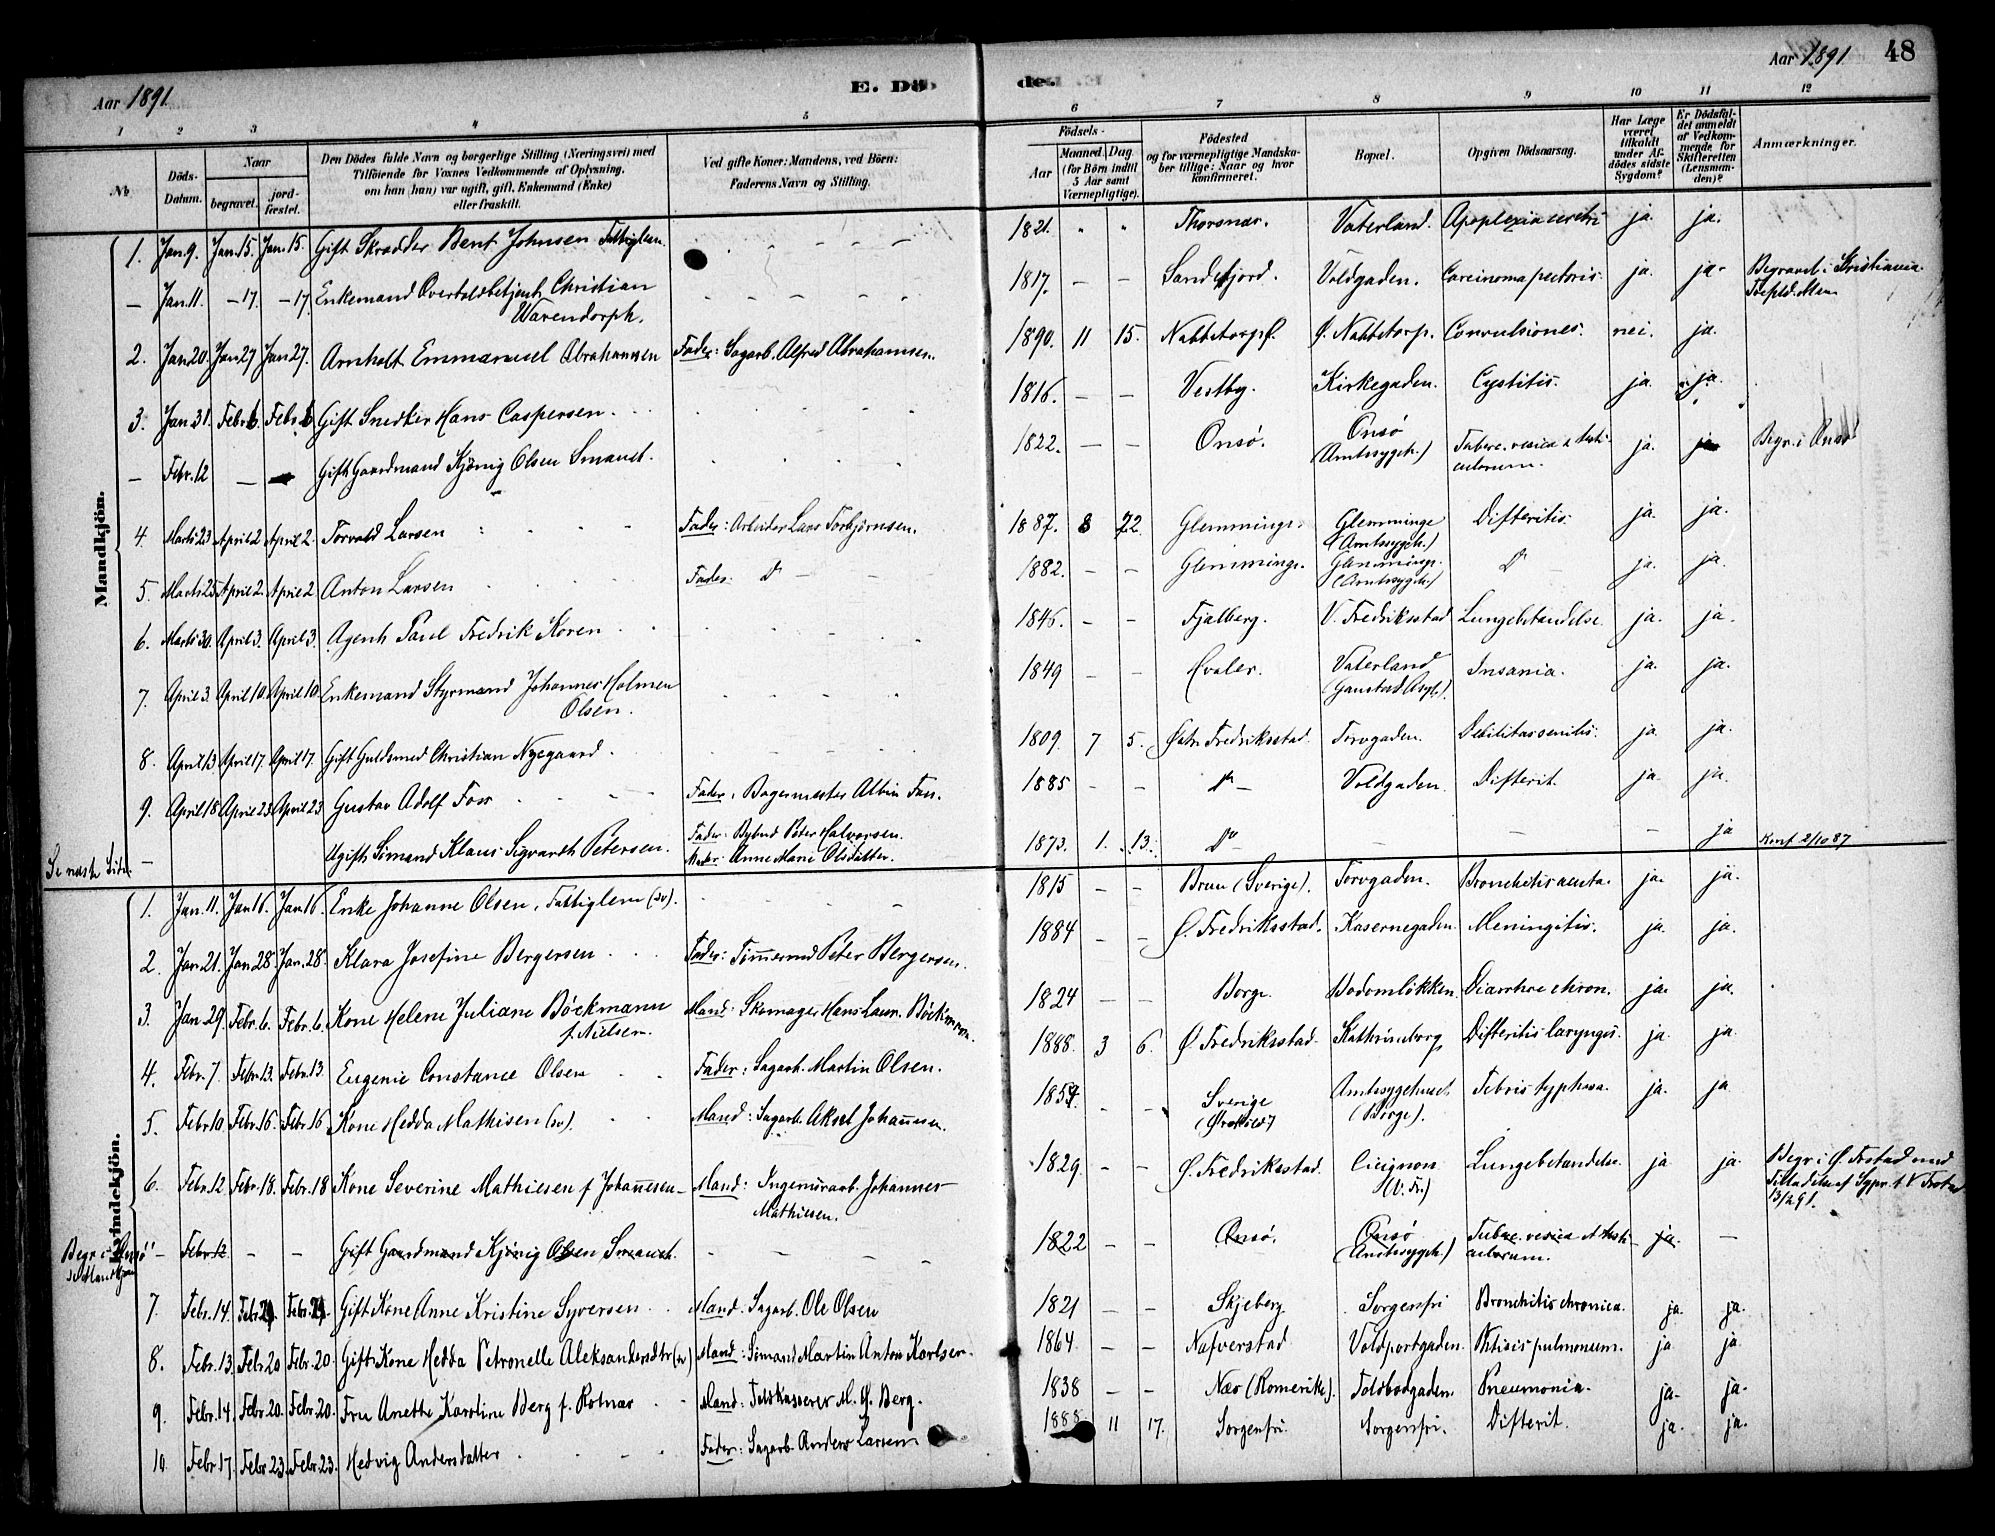 Aar 1891.
E. Dö
de.
Aar 1891
48
1 2 3 4 5 6 7 8 9 10 11 12
No.
Döds-Datum.
Naar
begravet.
jord-fæstet.
Den Dödes fulde Navn og borgerlige Stilling (Næringsvei) med
Tilföiende for Voxnes Vedkommende af Oplysning,
om han (hun) var ugift, gift, Enkemand (Enke)
eller fraskilt.
Ved gifte Koner: Mandens, ved Börn:
Faderens Navn og Stilling.
Födsels-
Aar
Maaned. Dag.
(for Börn indtil
5 Aar samt
Værnepligtige).
Födested
og for værnepligtige Mandska-
ber tillige: Naar og hvor
konfirmeret.
Bopæl.
Opgiven Dödsaarsag.
Har Læge
været
tilkaldt
under Af-
dödes sidste
Sygdom?
Er Dödsfal-
det anmeldt
af Vedkom-
mende for
Skifteretten
(Lensman-
den)?
Anmærkninger.
Mandkjön.
1. Jan. 9. Jan. 15. Jan. 15. Gift Skrædder Bent Johnsen Fattiglem. 1821. Thorsnæs. Vaterland. Apoplexia cerebri ja ja.
– Jan. 11. – 17. – 17. Enkemand Overtoldbetjent Christian
Warendorph. 1817. – – Sandefjord. Voldgaden. Carcinoma pectoris. ja. ja. Begravet i Kristiania
2. Jan. 20. Jan 27 Jan 27. Arnholt Emmanuel Abrahamsen Fader: Sagarb. Alfred Abrahamsen. 1890. 11 15. Nabbetorp Ö. Nabbetorp. Convulsiones. nei. ja.
3. Jan. 31. Febr. 6. Febr. 6 Gift Snedker Hans Caspersen. 1816. – – Vestby. Kirkegaden. Cystitis. ja ja.
– Febr. 12 – – Gift Gaardmand Kjönig Olsen Smaust. 1822. – – Onsö. Onsö
(Amtssygeh.) Tuberc. vesica et testi-
culorum. ja. ja Begr. i Onsö
4. Marts 23 April 2 April 2. Torvald Larsen Fader: Arbeider Lars Torbjörnsen. 1887. 8 22. Glemminge. Glemminge
(Amtssygeh.) Difteritis. ja. ja.
5. Marts 25 April 2. April 2 Anton Larsen Fader: Do – 1882. – – Glemminge. Glemminge.
(Amtssygeh.) Do – ja. ja.
6. Marts 30. April 3. April 3. Agent Paul Fredrik Koren 1846. – – Fjelberg. V. Fredriksstad Lungebetændelse. ja. ja.
7. April 3 April 10. April 10. Enkemand Styrmand Johannes Holmen
Olsen. 1849 – – Hvaler. Vaterland
(Gaustad Asyl). Insania. ja. ja.
8. April 13 April 17. April 17. Gift Guldsmed Christian Nygaard. 1809. 7 5. Östr. Fredriksstad. Torvgaden. Debilitas senilis. ja ja.
9. April 18 April 23 April 23 Gustav Adolf Foss Fader. Bagermester Albin Foss. 1885 – – Do – Voldgaden. Difterit. ja. ja.
– Ugift Sömand Klaus Sigvardt Petersen. Fader: Bybud Peter Halvorsen.
Moder: Anne Marie Olsdatter. 1873. 1. 13. Do – – – ja Konf 2/10 87
Se næste Side.
Kvindekjön.
1. Jan. 11. Jan 16. Jan. 16. Enke Johanne Olsen, Fattiglem (sv). 1815 – – Brun (Sverige). Torvgaden. Bronchitis acuta. ja. ja.
2. Jan. 21. Jan 28. Jan. 28. Klara Josefine Bergersen Fader: Tömmermd Peter Bergersen. 1884 – – Ö. Fredriksstad. Kasernegaden. Meningitis. ja. ja.
3. Jan. 29. Febr. 6. Febr. 6. Kone Helene Juliane Böckmann
f. Nielsen. Mand: Skomager Hans Laur. Böckmann. 1824 – – Borge. Bodomlökken. Diarrhoe chron. ja. ja.
4. Febr. 7 Febr. 13. Febr. 13. Eugenie Constance Olsen Fader: Sagarb. Martin Olsen. 1888. 3 6. Ö. Fredriksstad. Kathrineborg Difteritis laryngis. ja. ja.
5. Febr. 10. Febr. 16. Febr. 16 Kone Hedda Mathisen (sv). Mand: Sagarb. Aksel Johansen. – – Sverige
Amtssygehuset
(Borge). Febris typhosa. ja. ja
6. Febr. 12. Febr. 18. Febr. 18 Kone Severine Mathiesen f Johannesen – Mand: Ingeniörarb. Johannes
Mathiesen. 1829. – – Ö. Fredriksstad. Cicignon
(V. Fr.) Lungebetændelse. ja ja. Begr. i Ö. Frstad med
Tilladelse af Sogpr. t. V. Frstad
13/2 91.
Begr. i Onsö
– Febr. 12 – – Gift Gaardmand Kjönig Olsen Smaust. – 1822 – – Onsö. Onsö
(Amtssygeh.) Tuberc. vesica et testi-
culorum. ja. –
7. Febr. 14. Febr. 21. Febr. 21. Gift Kone Anne Kristine Syversen Mand: Sagarb. Ole Olsen 1821 – – Skjeberg. Sorgenfri Bronchitis chronica. ja. ja.
8. Febr. 13. Febr 20 Febr. 20. Gift Kone Hedda Petronelle Aleksandersdtr (sv) Mand: Sömand Martin Anton Karlsen. 1864. – – Nafverstad Voldportgaden. Phtisis pulmonum. ja ja.
9. Febr. 14. Febr. 20. Febr. 20. Fru Anette Karoline Berg f. Rotnæs Mand: Toldkasserer M. H. Berg. 1838 – – Næs (Romerike). Toldbodgaden. Pneumonia. ja. ja.
10. Febr. 17. Febr. 23. Febr. 23. Hedvig Andersdatter Fader: Sagarb. Anders Larsen 1888 11 17. Sorgenfri. Sorgenfri. Difterit. ja. ja.